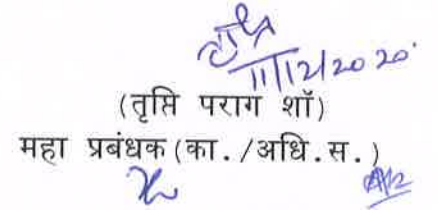 11/12/2020
(तृप्ति पराग शॉ)
महा प्रबंधक(का./अधि.स.)